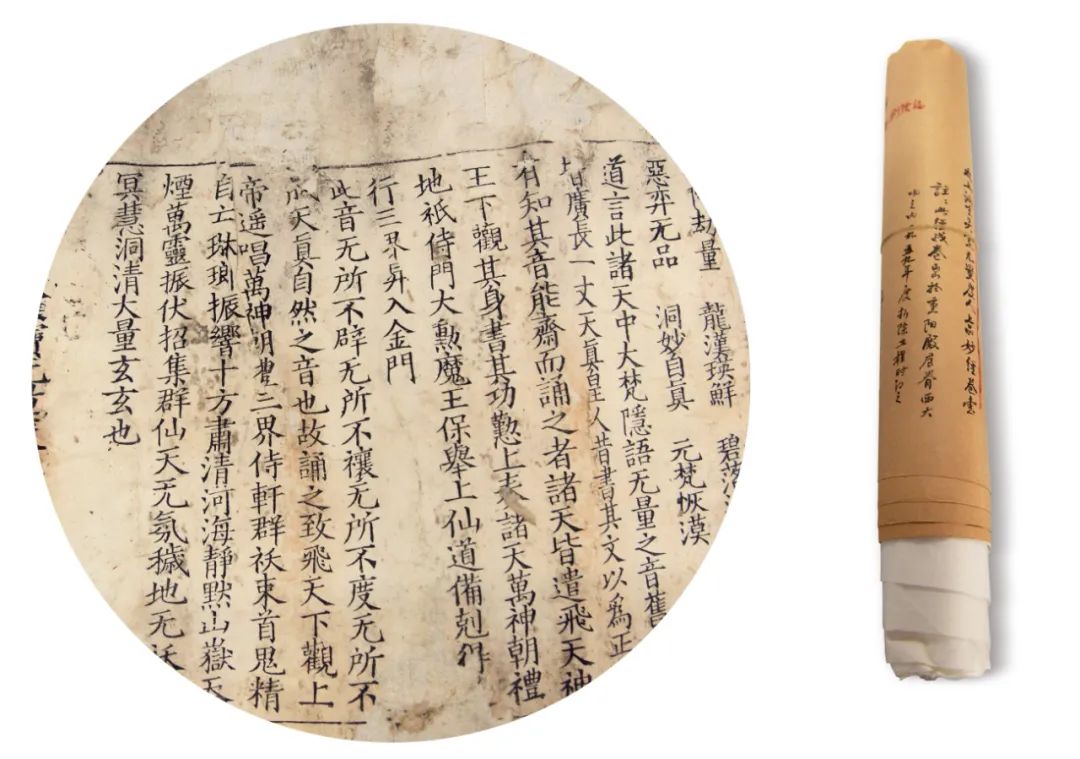 劫量 龍漢瑛鮮 碧落
惡弈无品 洞妙自真 元梵恢漠
道言此諸天中大梵隱語无量之音舊
皆廣長一丈天真皇人昔書其文以爲正
有知其音能齋而誦之者諸天皆遣飛天神
王下觀其身書其功懃上奏諸天萬神朝禮
地祇侍門大勳魔王保舉上仙道備剋得
行三界昇入金門
此音无所不辟无所不禳无所不度无所不
天真自然之音也故誦之致飛天下觀上
帝遥唱萬神三界侍軒群祅束首鬼精
自亡琳瑯振響十方肅清河海靜默山嶽天
煙萬靈振伏招集群仙天无氛穢地无祅
冥慧洞清大量玄玄也
无量度人上品妙經卷壹
註：此經残卷出於重阳殿屋脊西大
吻之内一九五九年度拆除工程時記之